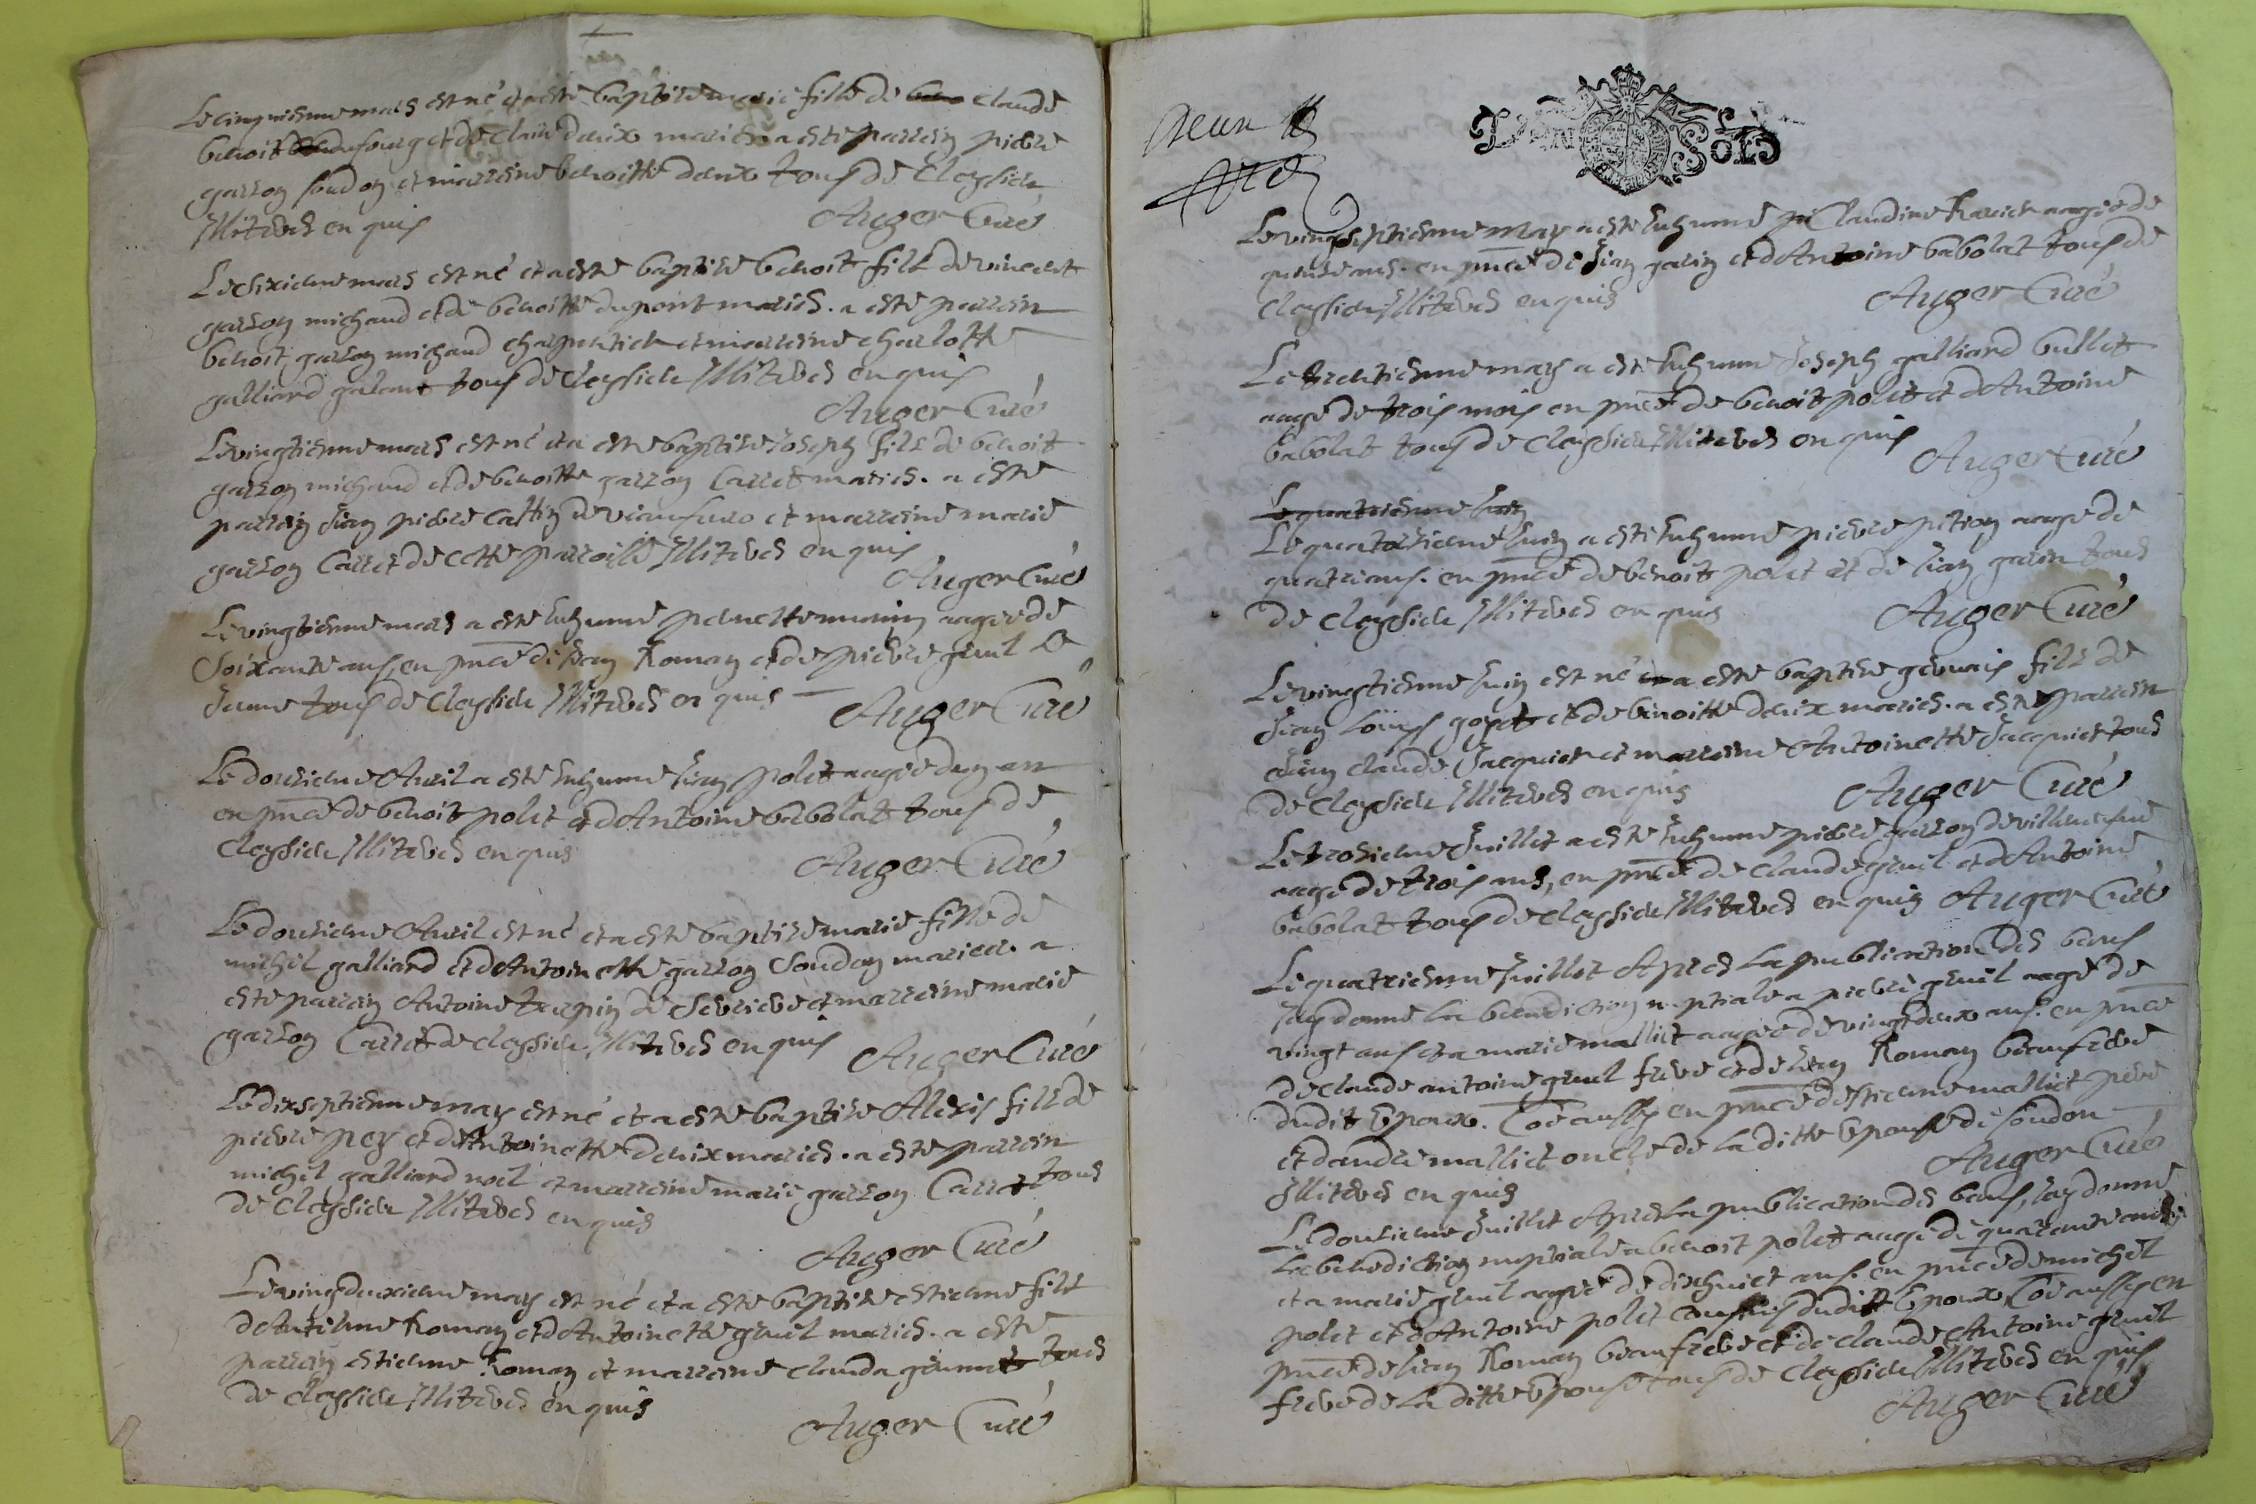 Le cinquiesme mars est né et a esté baptisé marie fille de claude
benoit dufourg et de claire daux mariés a esté parrein pierre
garzon soudon et marreine benoitte daux tous de Cleyssieu
Illiteres en quis
Auger Curé
Le sixiesme mars est né et a esté baptisé benoit fils de vincent
garzon michaud et de benoitte dupont mariés. a esté parrein
benoit garzon michaud charpentier et marreine charlotte
galliard galant tous de Cleyssieu Illiteres en quis
Auger Curé
Le vingtiesme mars est né et a esté baptisé Joseph fils de benoit
garzon michaud et de benoitte garzon Carret mariés. a esté
parrein Jean pierre et marreine marie
garzon Carret de cette parroisse Illiteres en quis
Auger Curé
Le vingtiesme mars a esté inhumé aagée de
Soixante ans, en pnce de Jean Roman et de pierre gruil le
Jeune tous de Cleyssieu Illiteres en quis
Auger Curé
Le dousiesme Avril a esté inhumé Jean polet aagé dun an
en pnce de benoit polet et dAntoine babolat tous de
Cleyssieu Illiteres en quis
Auger Curé
Le dousiesme Avril est né et a esté baptisé marie fille de
michel galliard et dAntoinette garzon Soudon mariés. a
esté parrein Antoine et marreine marie
garzon Carret de cleyssieu Illiteres en quis
Auger Curé
Le dixseptiesme may est né et a esté baptisé Alexis fils de
pierre pey et dAntoinette daix mariés. a esté parrein
michel galliard noel et marreine marie garzon Carret tous
de Cleyssieu Illiteres en quis
Auger Curé
Le vingtdeuxiesme may est né et a esté baptisé estienne fils
dAntelme Roman et dAntoinette gruil mariés. a esté
parrein estienne Roman et marreine clauda tous
de cleyssieu Illiteres en quis
Auger Curé
neuf
SOLS
Le vingtseptiesme may a esté inhumé Claudine aagée de
ans. en pnce de Jean garin et dAntoine babolat tous de
Cleyssieu Illiteres en quis
Auger Curé
Le trentiesme may a esté inhumé Joseph galliard bullet
aagé de trois mois en pnce de benoit polet et dAntoine
babolat tous de Cleyssieu Illiteres en quis
Auger Curé
Le quatriesme Juin
Le quatorsiesme Juin a esté inhumé pierre aagé de
quatre ans. en pnce de benoit polet et de Jean garin tous
de Cleyssieu Illiteres en quis
Auger Curé
Le vingtiesme Juin est né et a esté baptisé gervais fils de
Jean Louis et de benoitte daix mariés. a esté parrein
Jean claude Jacquier et marreine Antoinette Jacquier tous
de Cleyssieu Illiteres en quis
Auger Curé
Le troisiesme Juillet a esté inhumé pierre garzon de villeneufve
aagé de trois ans, en pnce de Claude gruil et dAntoine
babolat tous de Cleyssieu Illiteres en quis Auger Curé
Le quatriesme Juillet Apres la publication des bans
Jay donné la benediction nuptiale a pierre gruil aagé de
vingt ans et a marie malliet aagée de vingtdeux ans. en pnce
de claude antoine gruil frere et de Jean Roman beaufrere
dudit Epoux. Coe aussy en pnce destienne malliet pere
et dandre malliet oncle de la ditte Epouse de Soudon
Illiteres en quis
Auger Curé
Le dousiesme Juillet Apres la publication des bans, Jay donné
la benediction nuptiale a benoit polet aagé de quarante ans
et a marie gruil aagée de dixhuict ans. en pnce de michel
polet et dAntoine polet cousins dudit Epoux, Coe aussy en
pnce de Jean Roman beaufrere et de claude Antoine gruil
frere de la ditte Epouse tous de Cleyssieu Illiteres en quis
Auger Curé